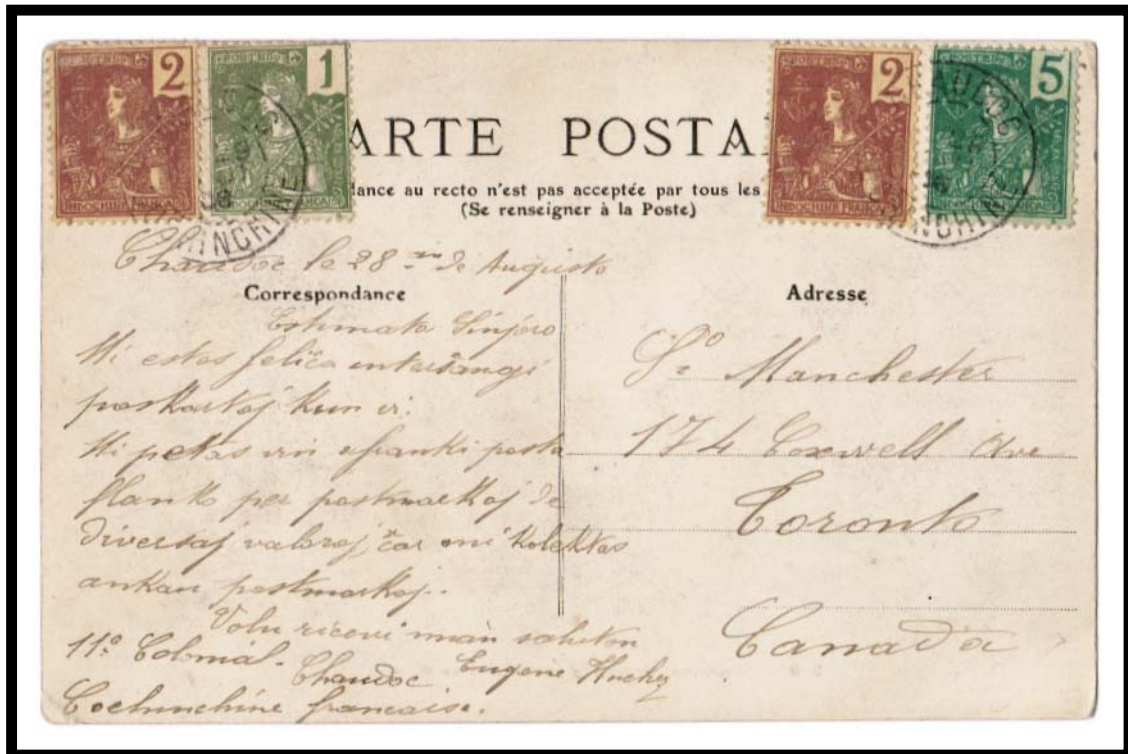 2
1
2
5
POSTES
POSTES
POSTES
POSTES
INDOCHINE FRANÇAISE
INDOCHINE FRANÇAISE
INDOCHINE FRANÇAISE
INDOCHINE FRANÇAISE
ARTE POSTA
dance au recto n'est pas acceptée par tous les
(Se renseigner à la Poste)
Chaudoc le 28 an de Augusto
Correspondance
Estimata Sinjoro
Mi estas feliĉa intersanĝi
poskartoj kun vi.
Mi petas vin afranki posta
flanko per postmarkoj de
diversaj valoroj ĉar mi kolektas
ankau postmarkoj.
Volu ricevi mian saluton
Eugene
11e Colonial. Chaudoc
Cochinchine francaise.
Adresse
So Manchester
174 Coxwell Ave
Toronto
Canada